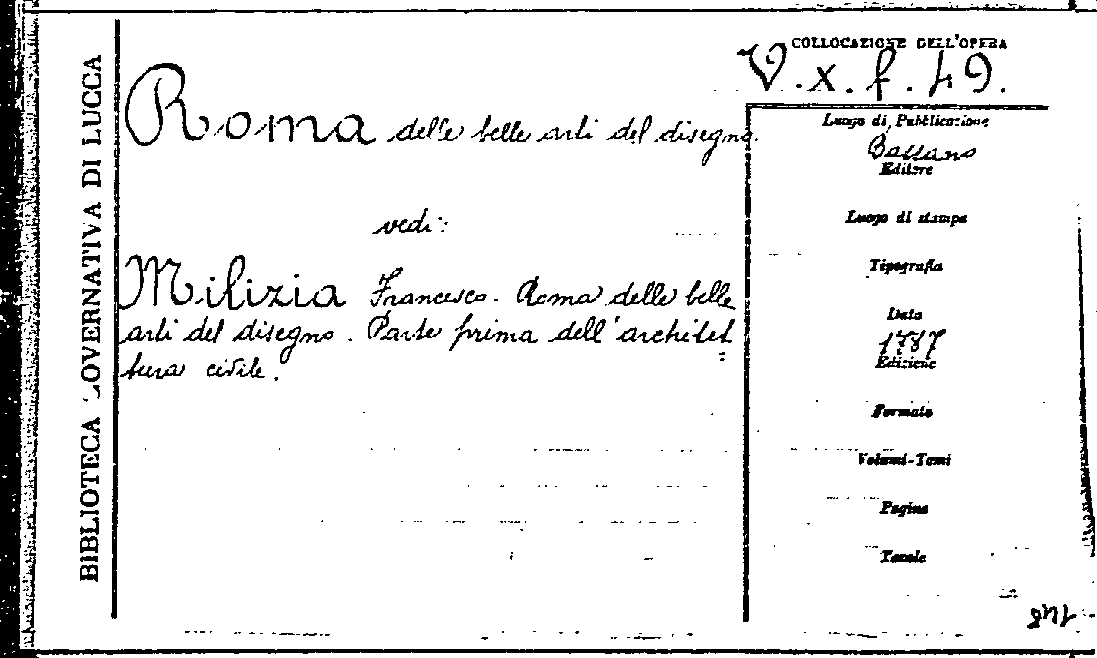 BIBLIOTECA GOVERNATIVA DI LUCCA
COLLOCAZIONE DELL'OPERA
V. x. f. 49.
Roma delle belle arti del disegno.
vedi:
Milizia Francesco. Roma delle belle
arti del disegno. Parte prima dell'architet
=
tura civile.
Luogo di Pubblicazione
Bassano
Editore
Luogo di stampa
Tipografia
Data
1787
Edizione
Formato
Volumi-Tomi
Pagine
Tavole